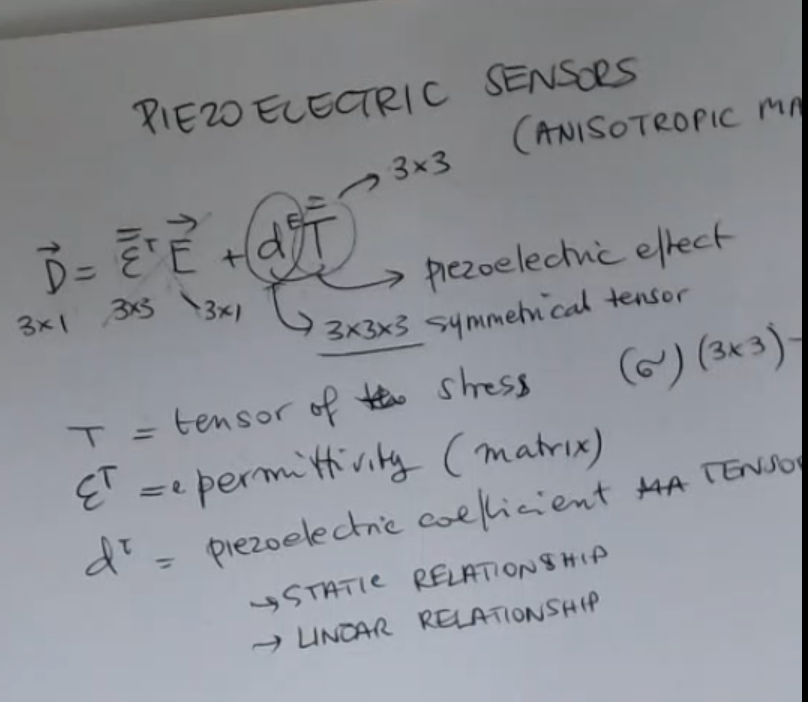 PIEZOELECTRIC SENSORS
(ANISOTROPIC MA
3x3
D⃗ = ε̿ᵀ E⃗ + d^E T̿
→ piezoelectric effect
3x1 3x3 3x1 → 3x3x3 symmetrical tensor
T = tensor of stress (σ) (3x3) -
εᵀ = permittivity (matrix)
dᵀ = piezoelectric coefficient TENSO
→ STATIC RELATIONSHIP
→ LINEAR RELATIONSHIP